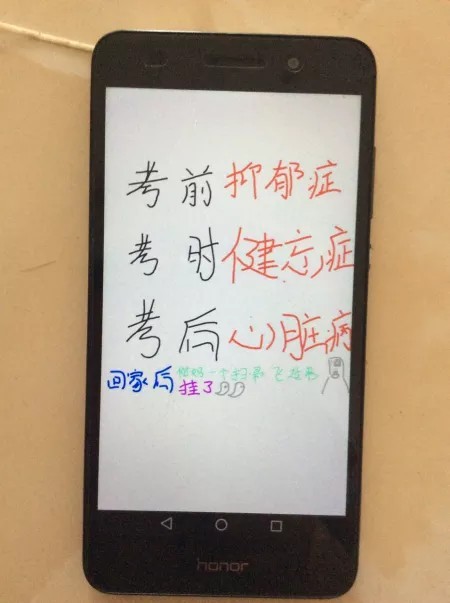 考前抑郁症
考时健忘症
考后心脏病
回家后 妈一个扫帚飞
挂了
honor